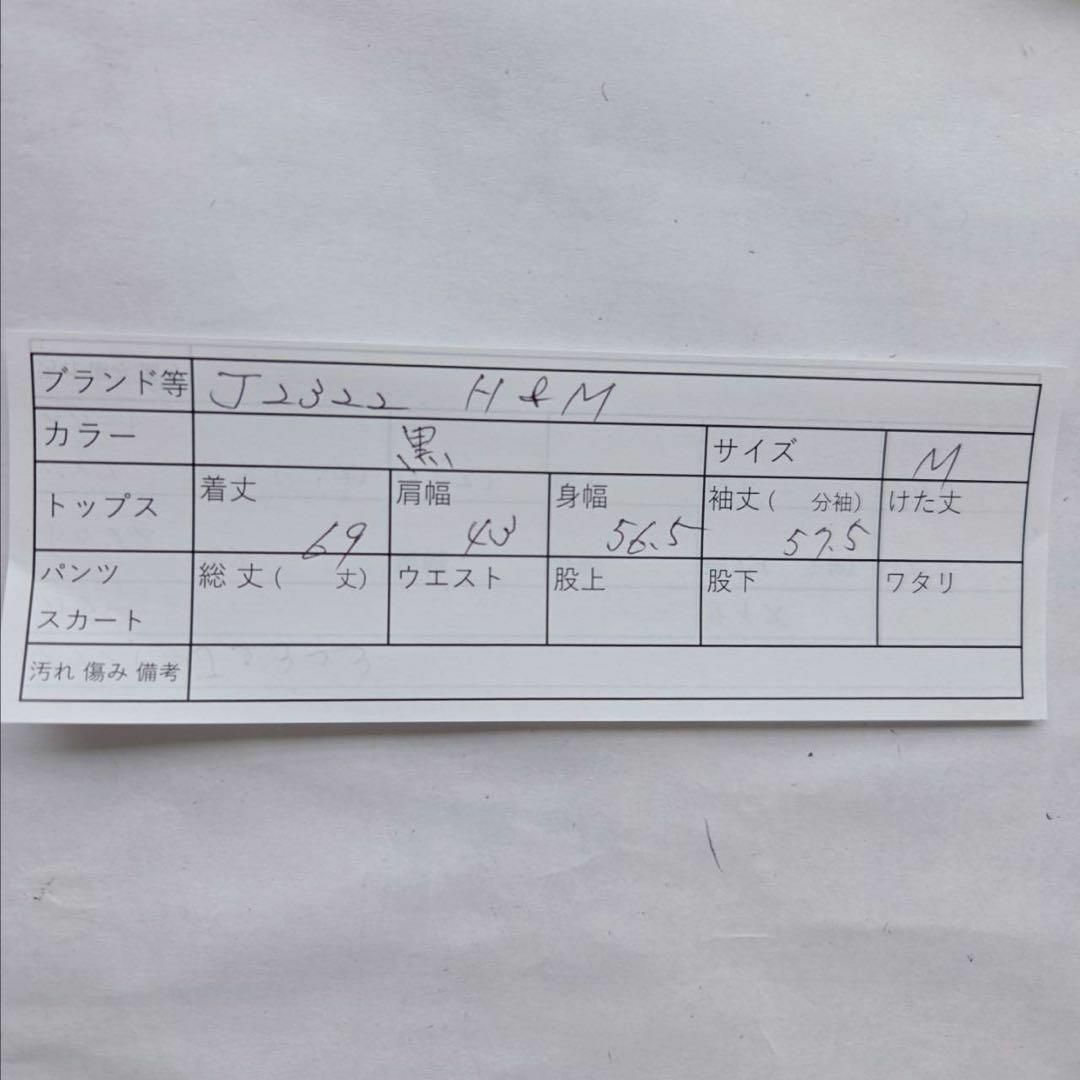 ブランド等 J2322 H&M
カラー 黒 サイズ M
トップス 着丈 69 肩幅 43 身幅 56.5 袖丈( 分袖) 57.5 けた丈
パンツ 総丈( 丈) ウエスト 股上 股下 ワタリ
スカート
汚れ 傷み 備考